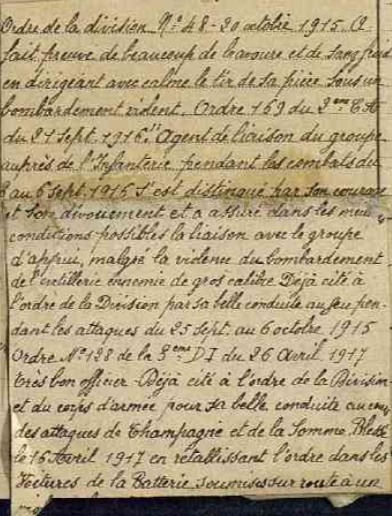 Ordre de la division N° 48 - 20 octobre 1915. A
fait preuve de beaucoup de bravoure et de sang froid
en dirigeant avec calme le tir de sa pièce sous un
bombardement violent. Ordre 169 du 2eme C.A
du 21 Sept. 1916. " Agent de liaison du groupe
auprès de l'Infanterie pendant les combats du
au 6 sept. 1916 S'est distingué par son courage
et son dévouement et a assuré dans les meil
conditions possibles la liaison avec le groupe
d'appui, malgré la violence du bombardement
de l'artillerie ennemie de gros calibre Déjà cité à
l'ordre de la Division par sa belle conduite au feu pen-
dant les attaques du 25 sept. au 6 octobre 1915
Ordre N° 128 de la 3eme D I du 26 Avril 1917
très bon officier - Déjà cité à l'ordre de la Division
et du corps d'armée pour sa belle conduite au cours
des attaques de Champagne et de la Somme, Blessé
le 16 Avril 1917 en rétablissant l'ordre dans les
Voitures de la Batterie soumises sur route à un